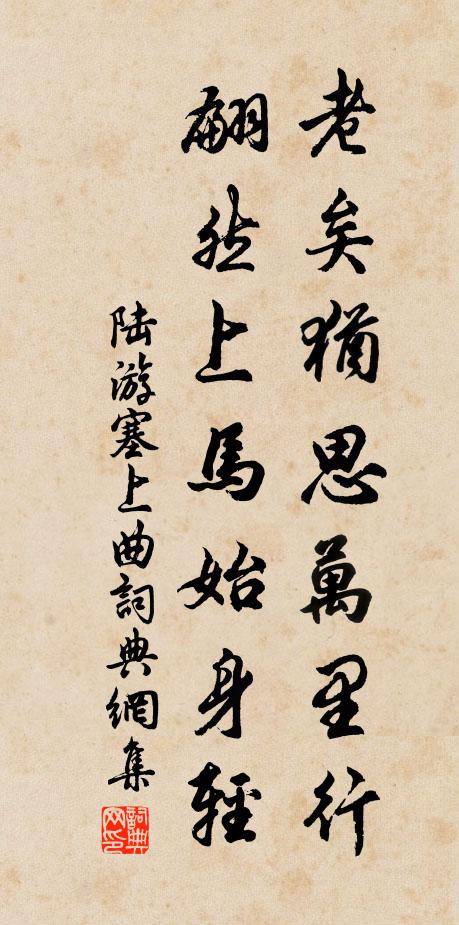 老矣猶思萬里行
翩然上馬始身輕
陸游塞上曲詞典網集
詞典網印